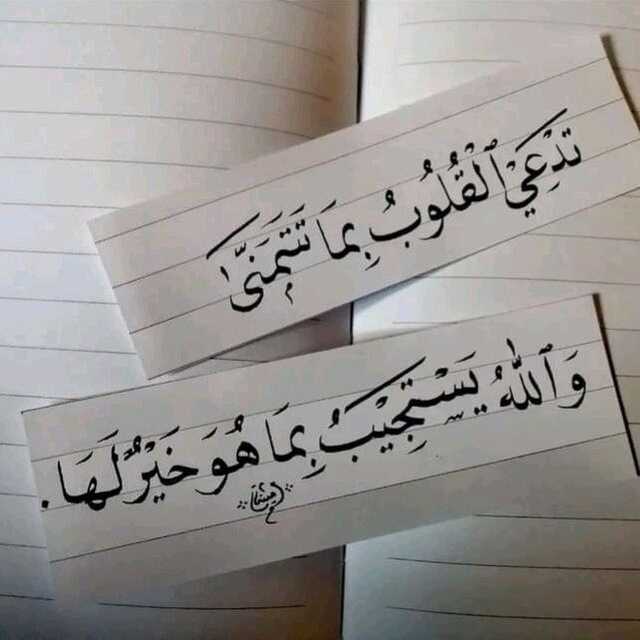 تَدْعِيْ ٱلْقُلُوبُ بِمَا تَتَمَنَّىٰ
وَٱللّٰهُ يَسْتَجِيْبُ بِمَا هُوَ خَيْرٌ لَهَا.